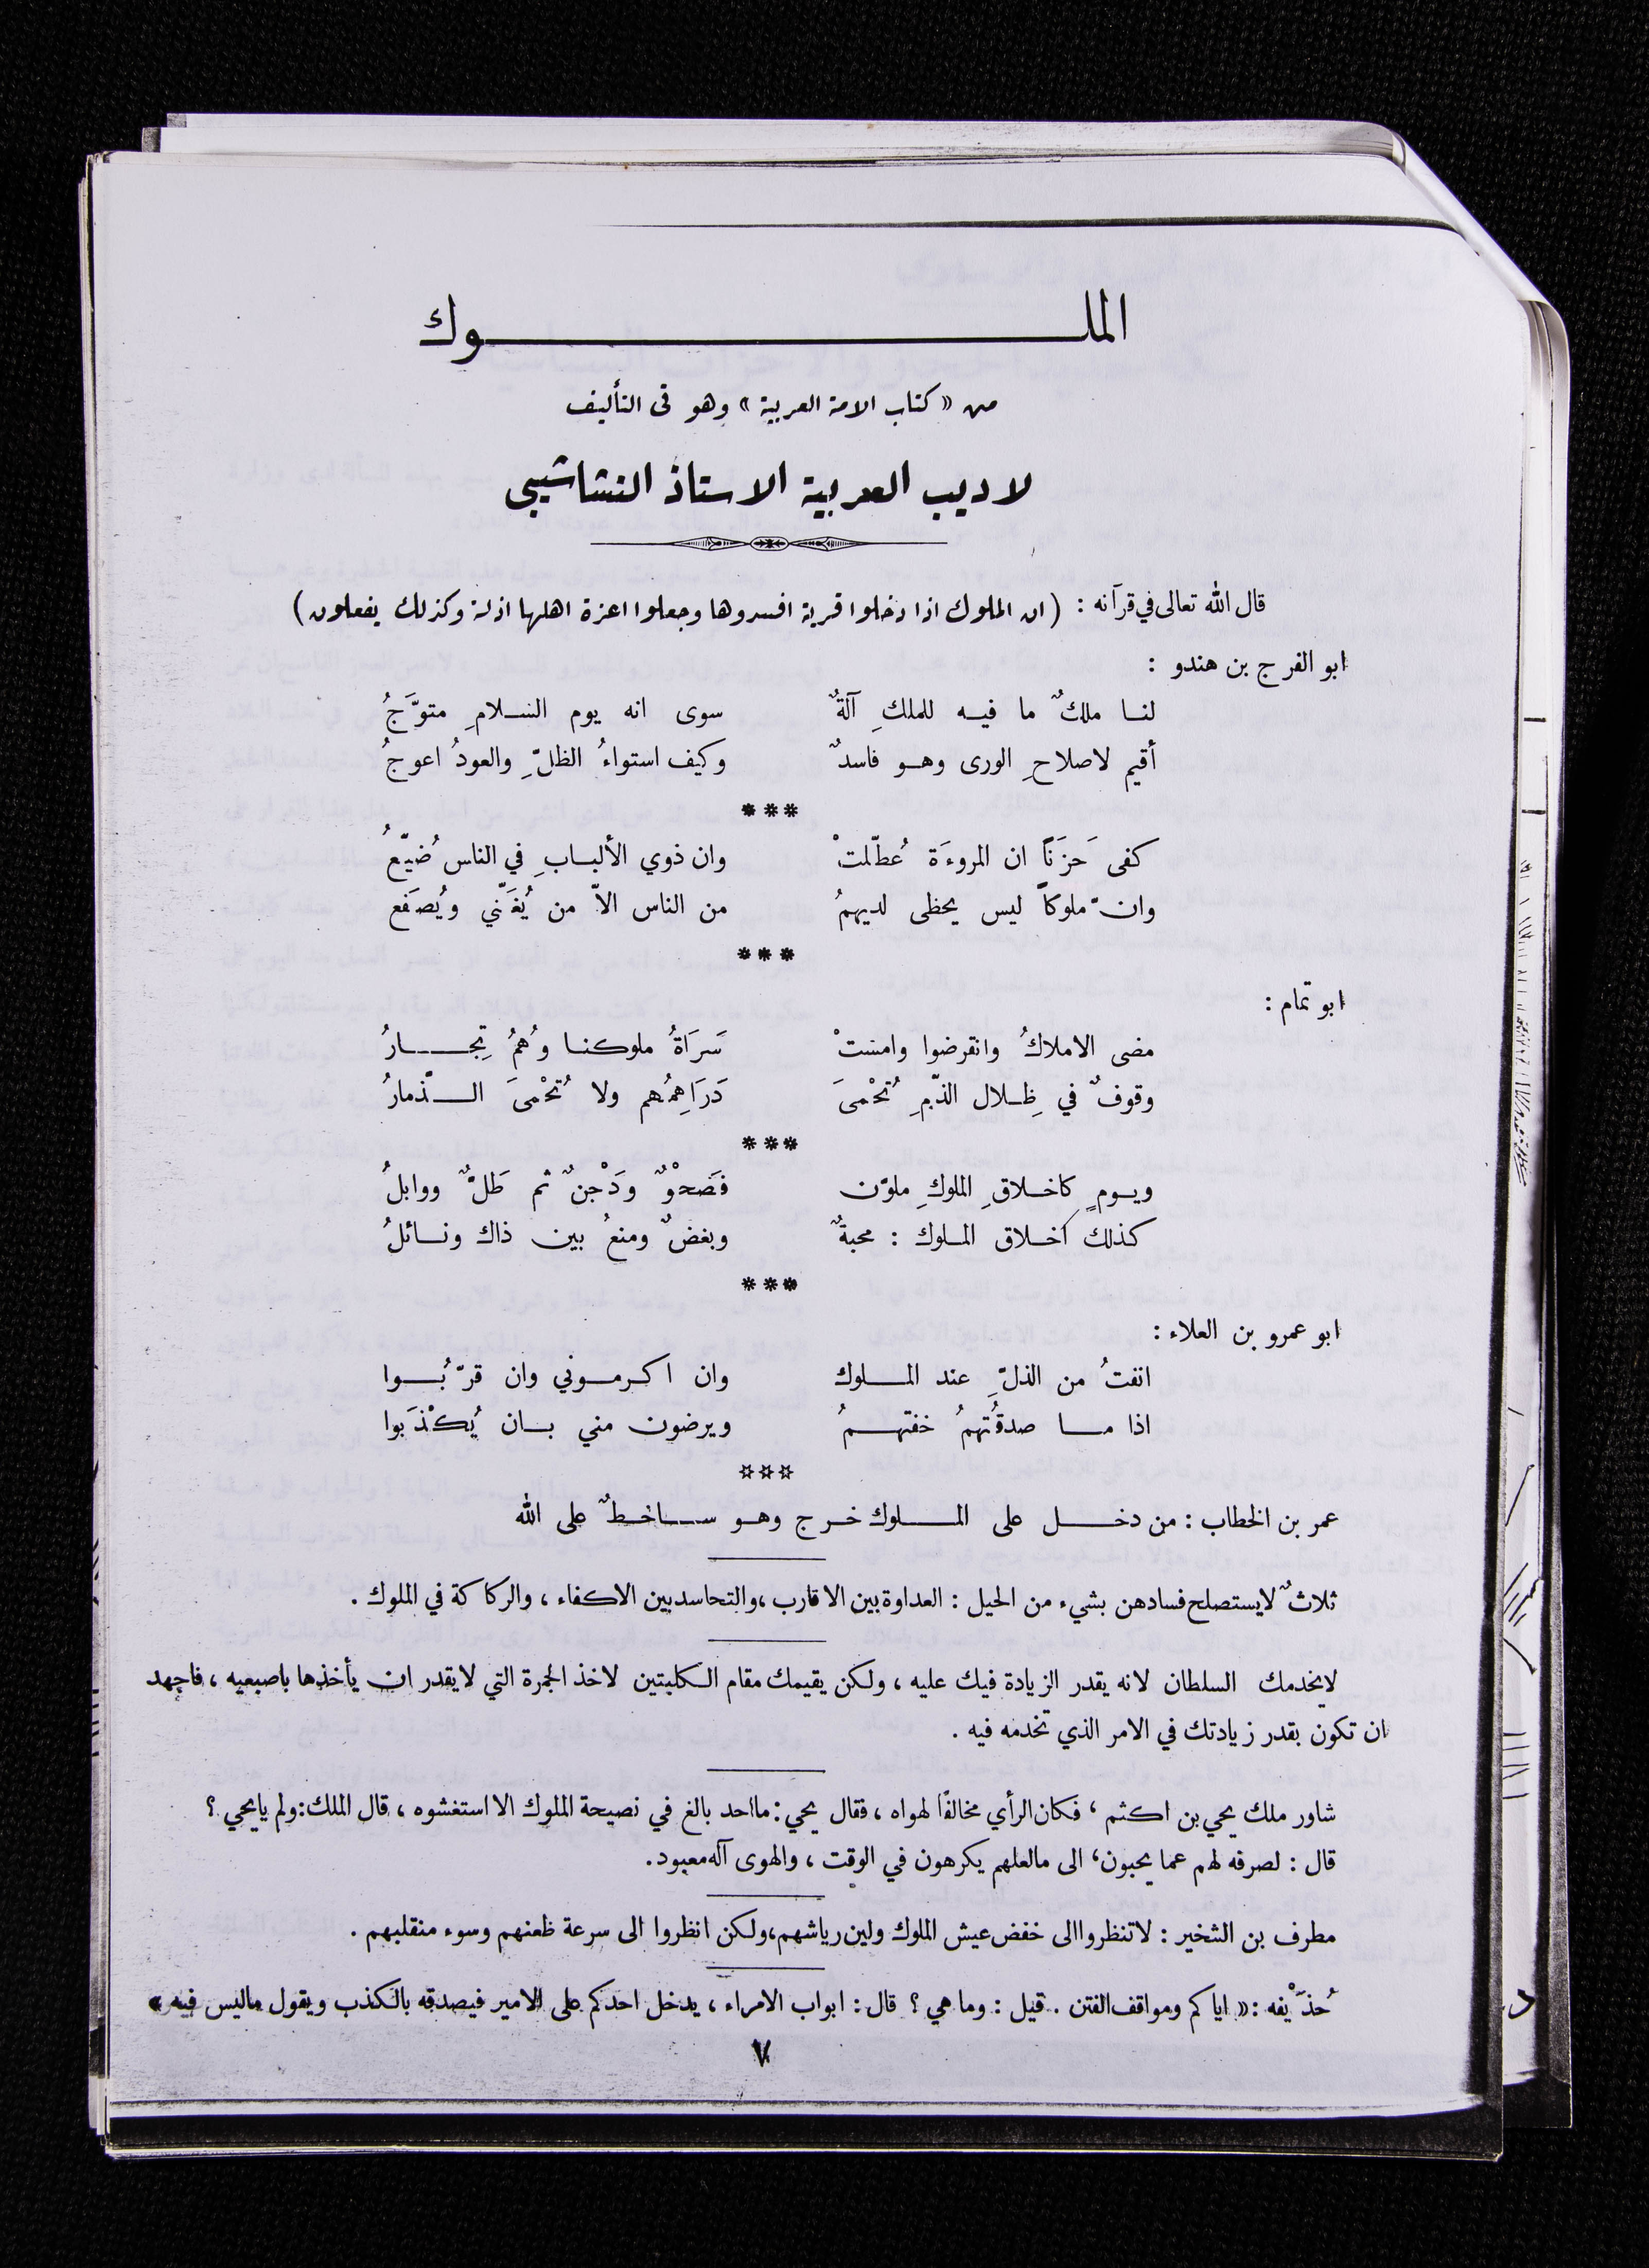 الملوك
من « كتاب الامة العربية » وهو في التأليف
لاديب العربية الاستاذ النشاشيبي
قال الله تعالى في قرآنه : ( ان الملوك اذا دخلوا قرية افسدوها وجعلوا اعزة اهلها اذلة وكذلك يفعلون )
ابو الفرج بن هندو :
لنا ملكٌ ما فيه للملكِ آلةٌ سوى انه يوم السلامِ متوَّجُ
أقيم لاصلاحِ الورى وهو فاسدٌ وكيف استواءُ الظلِّ والعودُ اعوجُ
***
كفى حَزَنًا ان المروءَة عُطّلتْ وان ذوي الألبابِ في الناس ضُيّعُ
وانّ ملوكاً ليس يحظى لديهمُ من الناس الاّ من يُغَنّي ويُصفَع
***
ابو تمام :
مضى الاملاكُ وانقرضوا وامستْ سَرَاةُ ملوكنا وهُمُ تِجارُ
وقوفٌ في ظِلال الذّمِ تُحْمىَ دَرَاهِمُهم ولا تُحْمىَ الذّمارُ
***
ويومٍ كاخلاقِ الملوكِ ملوّن فصَحْوٌ ودَجْنٌ ثم طَلٌّ ووابلُ
كذلك أخلاق الملوك : محبةٌ وبغضٌ ومنعُ بين ذاك ونائلُ
***
ابو عمرو بن العلاء :
انفتُ من الذلِّ عند الملوك وان اكرموني وان قرّبُوا
اذا ما صدقتُهمُ خفتهمُ ويرضون مني بان يُكْذَبوا
***
عمر بن الخطاب : من دخل على الملوك خرج وهو ساخطٌ على الله
ثلاثٌ لايستصلح فسادهن بشيء من الحيل : العداوة بين الاقارب ، والتحاسد بين الاكفاء ، والركاكة في الملوك .
لايخدمك السلطان لانه يقدر الزيادة فيك عليه ، ولكن يقيمك مقام الكلبتين لاخذ الجمرة التي لايقدر ان يأخذها باصبعيه ، فاجهد
ان تكون بقدر زيادتك في الامر الذي تخدمه فيه .
شاور ملك يحي بن اكثم ، فكان الرأي مخالفًا لهواه ، فقال يحي : ما احد بالغ في نصيحة الملوك الا استغشوه ، قال الملك : ولم يايحي ؟
قال : لصرفه لهم عما يحبون ، الى مالعلهم يكرهون في الوقت ، والهوى آله معبود .
مطرف بن الشخير : لاتنظروا الى خفض عيش الملوك ولين رياشهم ، ولكن انظروا الى سرعة ظعنهم وسوء منقلبهم .
حُذَيْفه : « اياكم ومواقف الفتن . . قيل : وما هي ؟ قال : ابواب الامراء ، يدخل احدكم على الامير فيصدقه بالكذب ويقول ماليس فيه »
٧